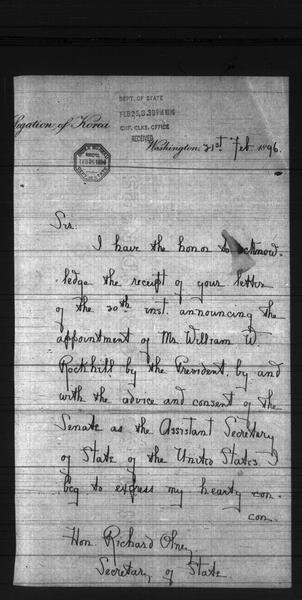 DEPT. OF STATE
RECEIVED
Legation of Korea
Washington, 21st Feb 1896.
Sir.
I have the honor to acknow-
ledge the receipt of your letter
of the 20th inst. announcing the
appointment of Mr. William W.
Rockhill by the President, by and
with the advice and consent of the
Senate as the Assistant Secretary
of State of the United States. I
beg to express my hearty con-
con-
Hon. Richard Olney
Secretary of State.